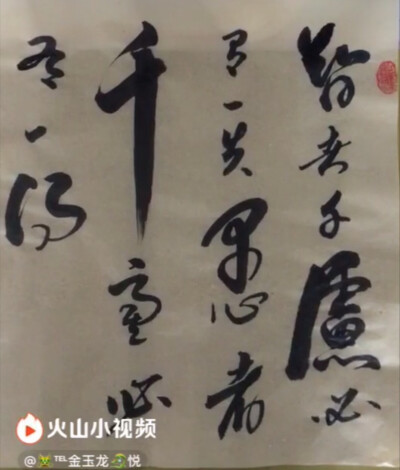 智者千慮必
有一失愚者
千慮必
有一得
火山小视频
@℡金玉龙悦